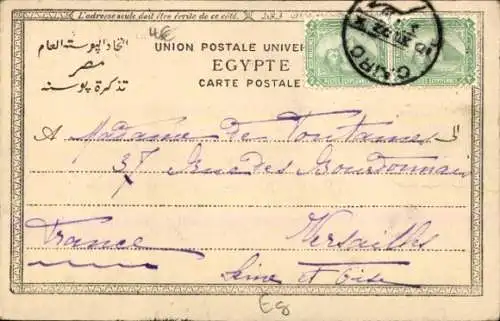 L'adresse seule doit être écrite de ce côté.
46
اتحاد البوستة العام
مصر
تذكرة بوستة
UNION POSTALE UNIVER
EGYPTE
CARTE POSTALE
CAIRO
A Madame de Fontaines
37 Rue des Bourdonnais
France Versailles
Seine et Oise
E8